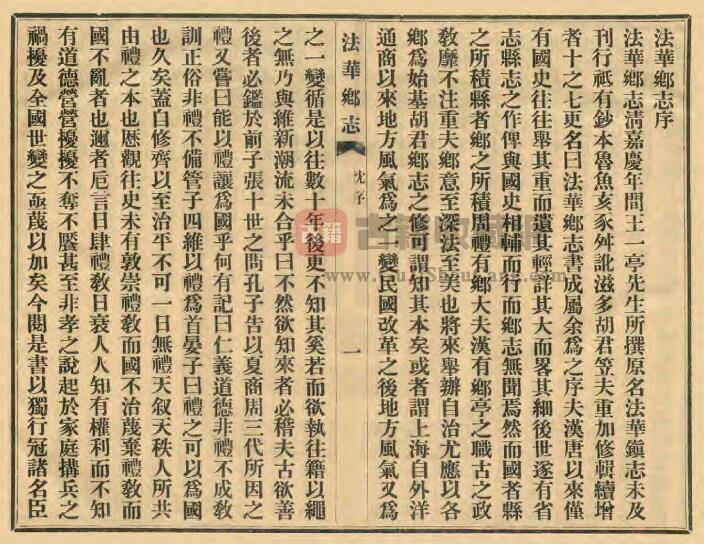 法華鄉志序
法華鄉志清嘉慶年間王一亭先生所撰原名法華鎮志未及
刊行祇有鈔本魯魚亥豕舛訛滋多胡君笠夫重加修輯續增
者十之七更名曰法華鄉志書成屬余爲之序夫漢唐以來僅
有國史往往舉其重而遺其輕詳其大而畧其細後世遂有省
志縣志之作俾與國史相輔而行而鄉志無聞焉然而國者縣
之所積縣者鄉之所積周禮有鄉大夫漢有鄉亭之職古之政
敎靡不注重夫鄉意至深法至美也將來舉辦自治尤應以各
鄉爲始基胡君鄉志之修可謂知其本矣或者謂上海自外洋
通商以來地方風氣爲之一變民國改革之後地方風氣又爲
法華鄉志
沈序
一
之一變循是以往數十年後更不知其奚若而欲執往籍以繩
之無乃與維新潮流未合乎曰不然欲知來者必稽夫古欲善
後者必鑑於前子張十世之問孔子告以夏商周三代所因之
禮又嘗曰能以禮讓爲國乎何有記曰仁義道德非禮不成敎
訓正俗非禮不備管子四維以禮爲首晏子曰禮之可以爲國
也久矣蓋自修齊以至治平不可一日無禮天叙天秩人所共
由禮之本也歷觀往史未有敦崇禮敎而國不治蔑棄禮敎而
國不亂者也邇者卮言日肆禮敎日衰人人知有權利而不知
有道德營營擾擾不奪不饜甚至非孝之說起於家庭搆兵之
禍擾及全國世變之亟蔑以加矣今閱是書以獨行冠諸名臣
古籍